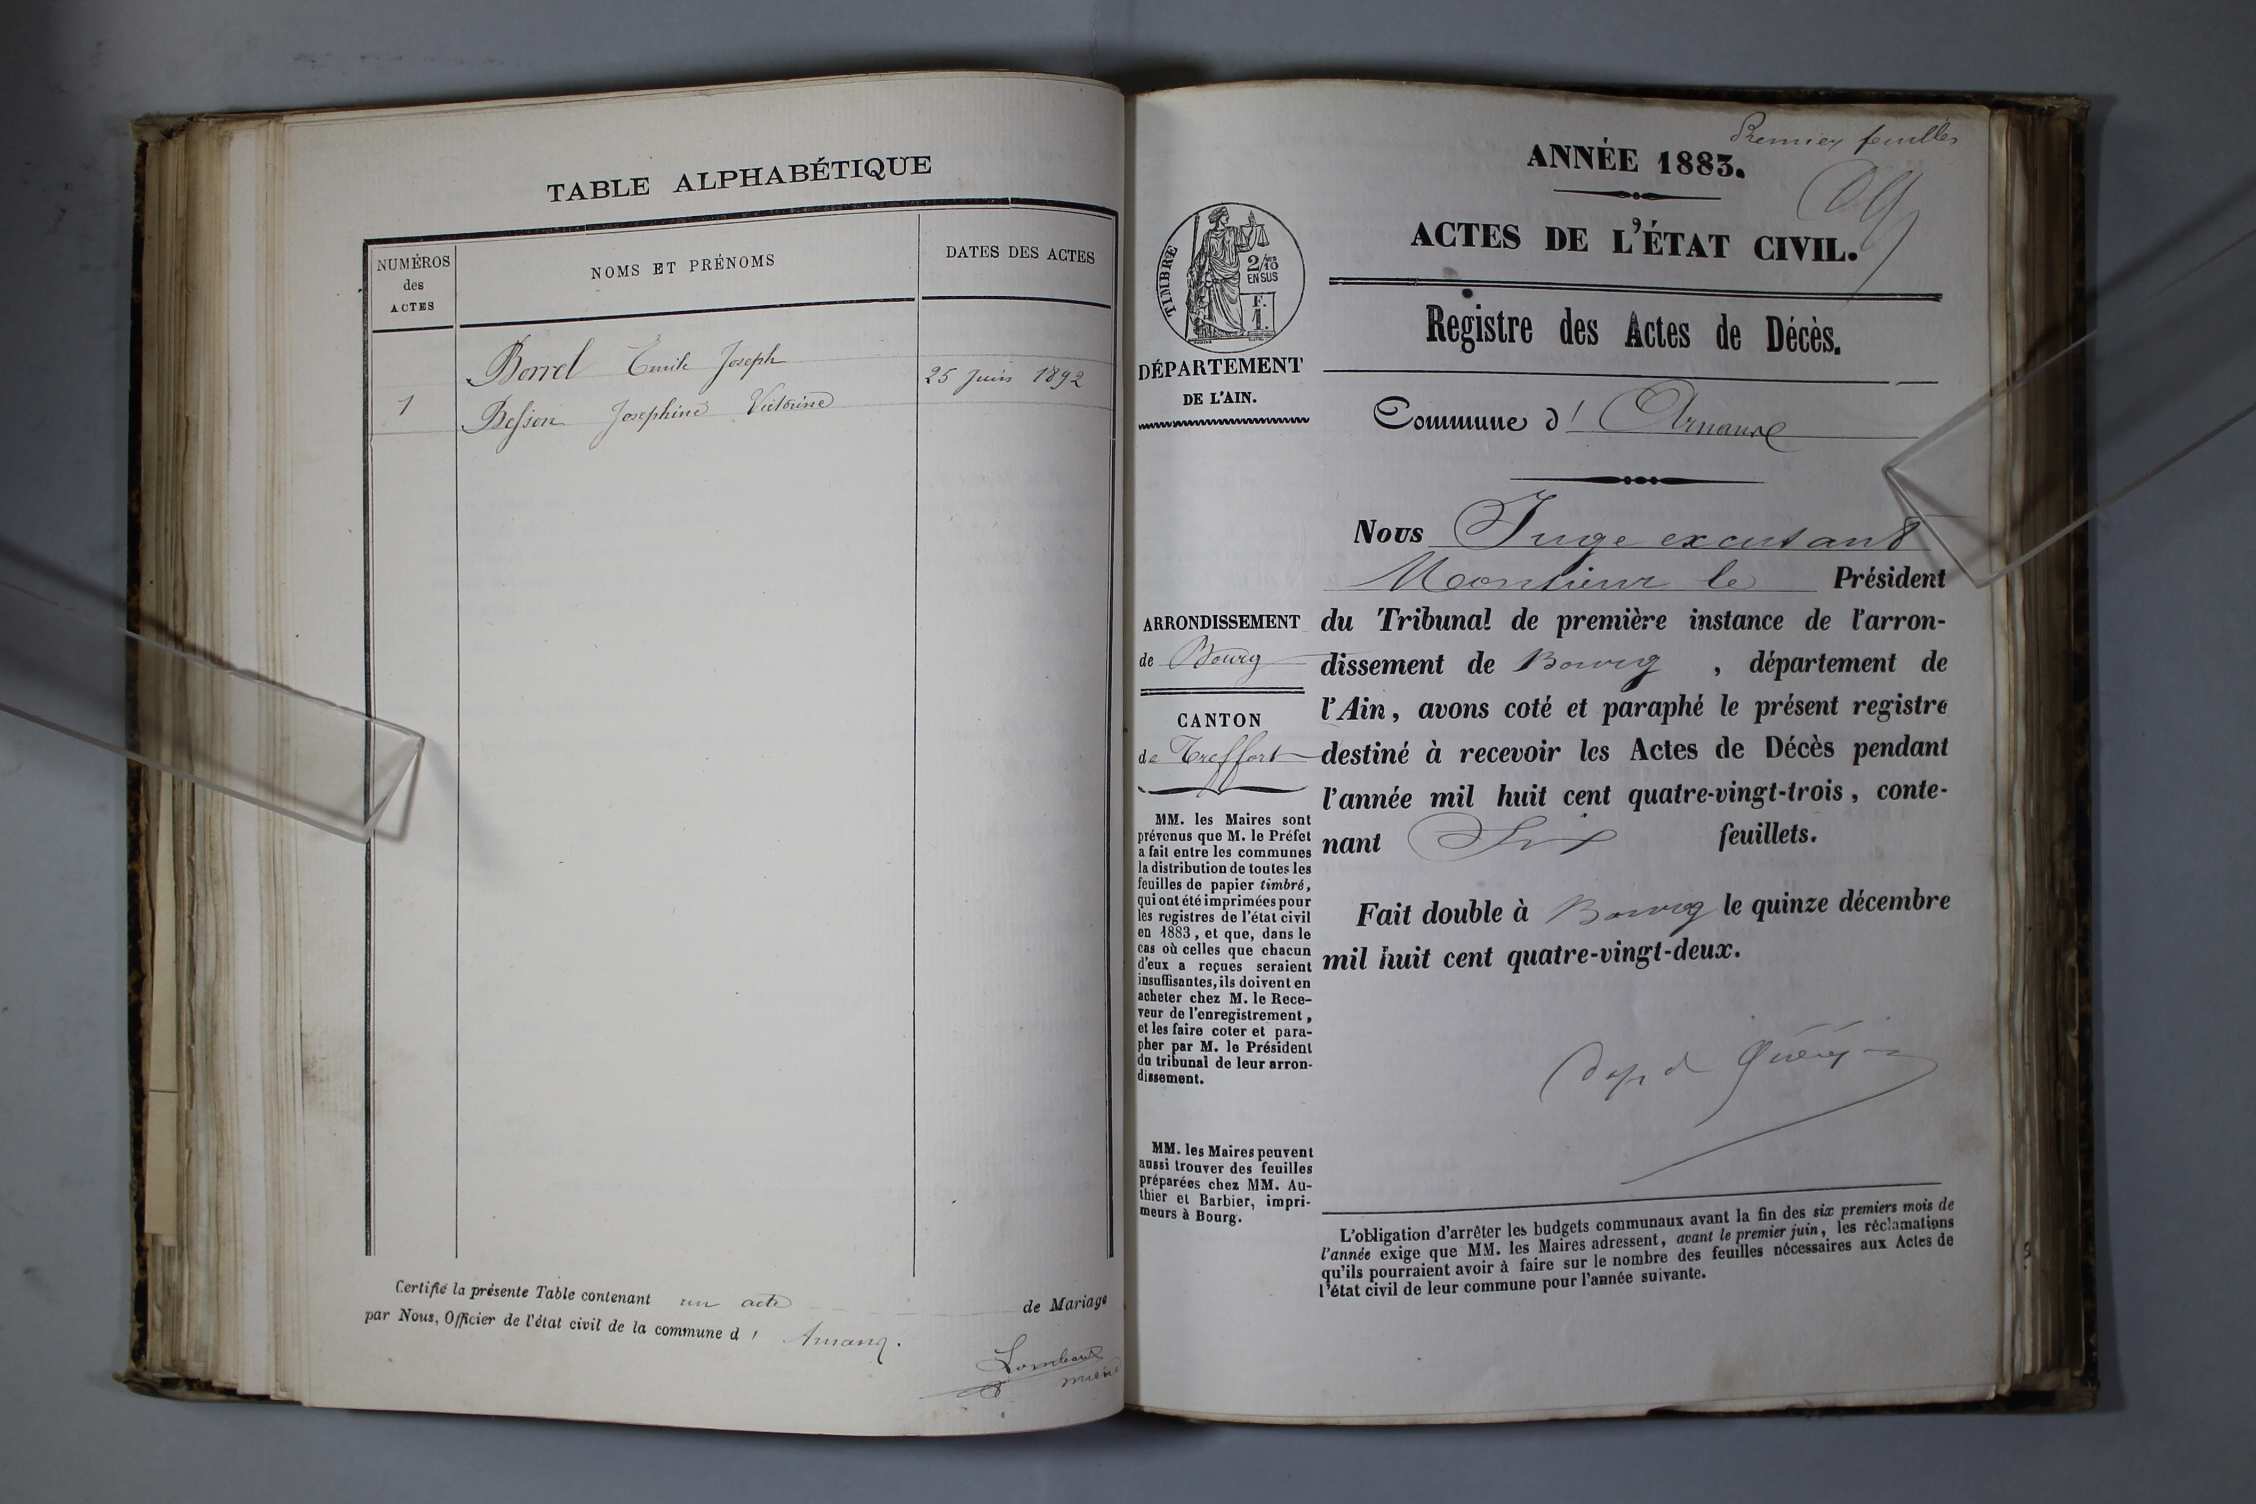 TABLE ALPHABÉTIQUE
NUMÉROS
des
ACTES
NOMS ET PRÉNOMS
DATES DES ACTES
Borrel Emile Joseph
25 Juin 1892
1
Besson Josephine Victorine
Certifié la présente Table contenant un acte de Mariage
par Nous, Officier de l'état civil de la commune d'
Premier feuillet
ANNÉE 1883.
ACTES DE L'ÉTAT CIVIL.
TIMBRE
2/10
EN SUS
F.
1.
Registre des Actes de Décès.
DÉPARTEMENT
DE L'AIN.
Commune d'
Nous Juge
Monsieur le Président
ARRONDISSEMENT
de Bourg
CANTON
de Treffort
du Tribunal de première instance de l'arron-
dissement de Bourg, département de
l'Ain, avons coté et paraphé le présent registre
destiné à recevoir les Actes de Décès pendant
l'année mil huit cent quatre-vingt-trois, conte-
nant Six feuillets.
Fait double à Bourg le quinze décembre
mil huit cent quatre-vingt-deux.
MM. les Maires sont
prévenus que M. le Préfet
a fait entre les communes
la distribution de toutes les
feuilles de papier timbré,
qui ont été imprimées pour
les registres de l'état civil
en 1883, et que, dans le
cas où celles que chacun
d'eux a reçues seraient
insuffisantes, ils doivent en
acheter chez M. le Rece-
veur de l'enregistrement,
et les faire coter et para-
pher par M. le Président
du tribunal de leur arron-
dissement.
MM. les Maires peuvent
aussi trouver des feuilles
préparées chez MM. Au-
thier et Barbier, impri-
meurs à Bourg.
L'obligation d'arrêter les budgets communaux avant la fin des six premiers mois de
l'année exige que MM. les Maires adressent, avant le premier juin, les réclamations
qu'ils pourraient avoir à faire sur le nombre des feuilles nécessaires aux Actes de
l'état civil de leur commune pour l'année suivante.